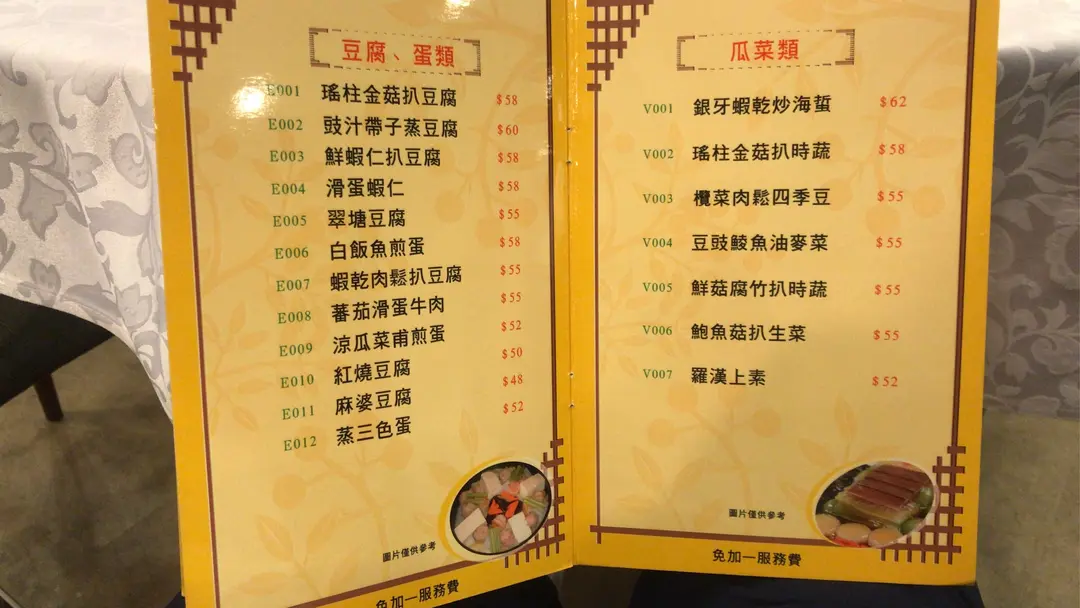 豆腐、蛋類
E001 瑤柱金菇扒豆腐 $58
E002 豉汁帶子蒸豆腐 $60
E003 鮮蝦仁扒豆腐 $58
E004 滑蛋蝦仁 $58
E005 翠塘豆腐 $55
E006 白飯魚煎蛋 $58
E007 蝦乾肉鬆扒豆腐 $55
E008 蕃茄滑蛋牛肉 $55
E009 涼瓜菜甫煎蛋 $52
E010 紅燒豆腐 $50
E011 麻婆豆腐 $48
E012 蒸三色蛋 $52
圖片僅供參考
免加一服務費
瓜菜類
V001 銀牙蝦乾炒海蜇 $62
V002 瑤柱金菇扒時蔬 $58
V003 欖菜肉鬆四季豆 $55
V004 豆豉鯪魚油麥菜 $55
V005 鮮菇腐竹扒時蔬 $55
V006 鮑魚菇扒生菜 $55
V007 羅漢上素 $52
圖片僅供參考
免加一服務費